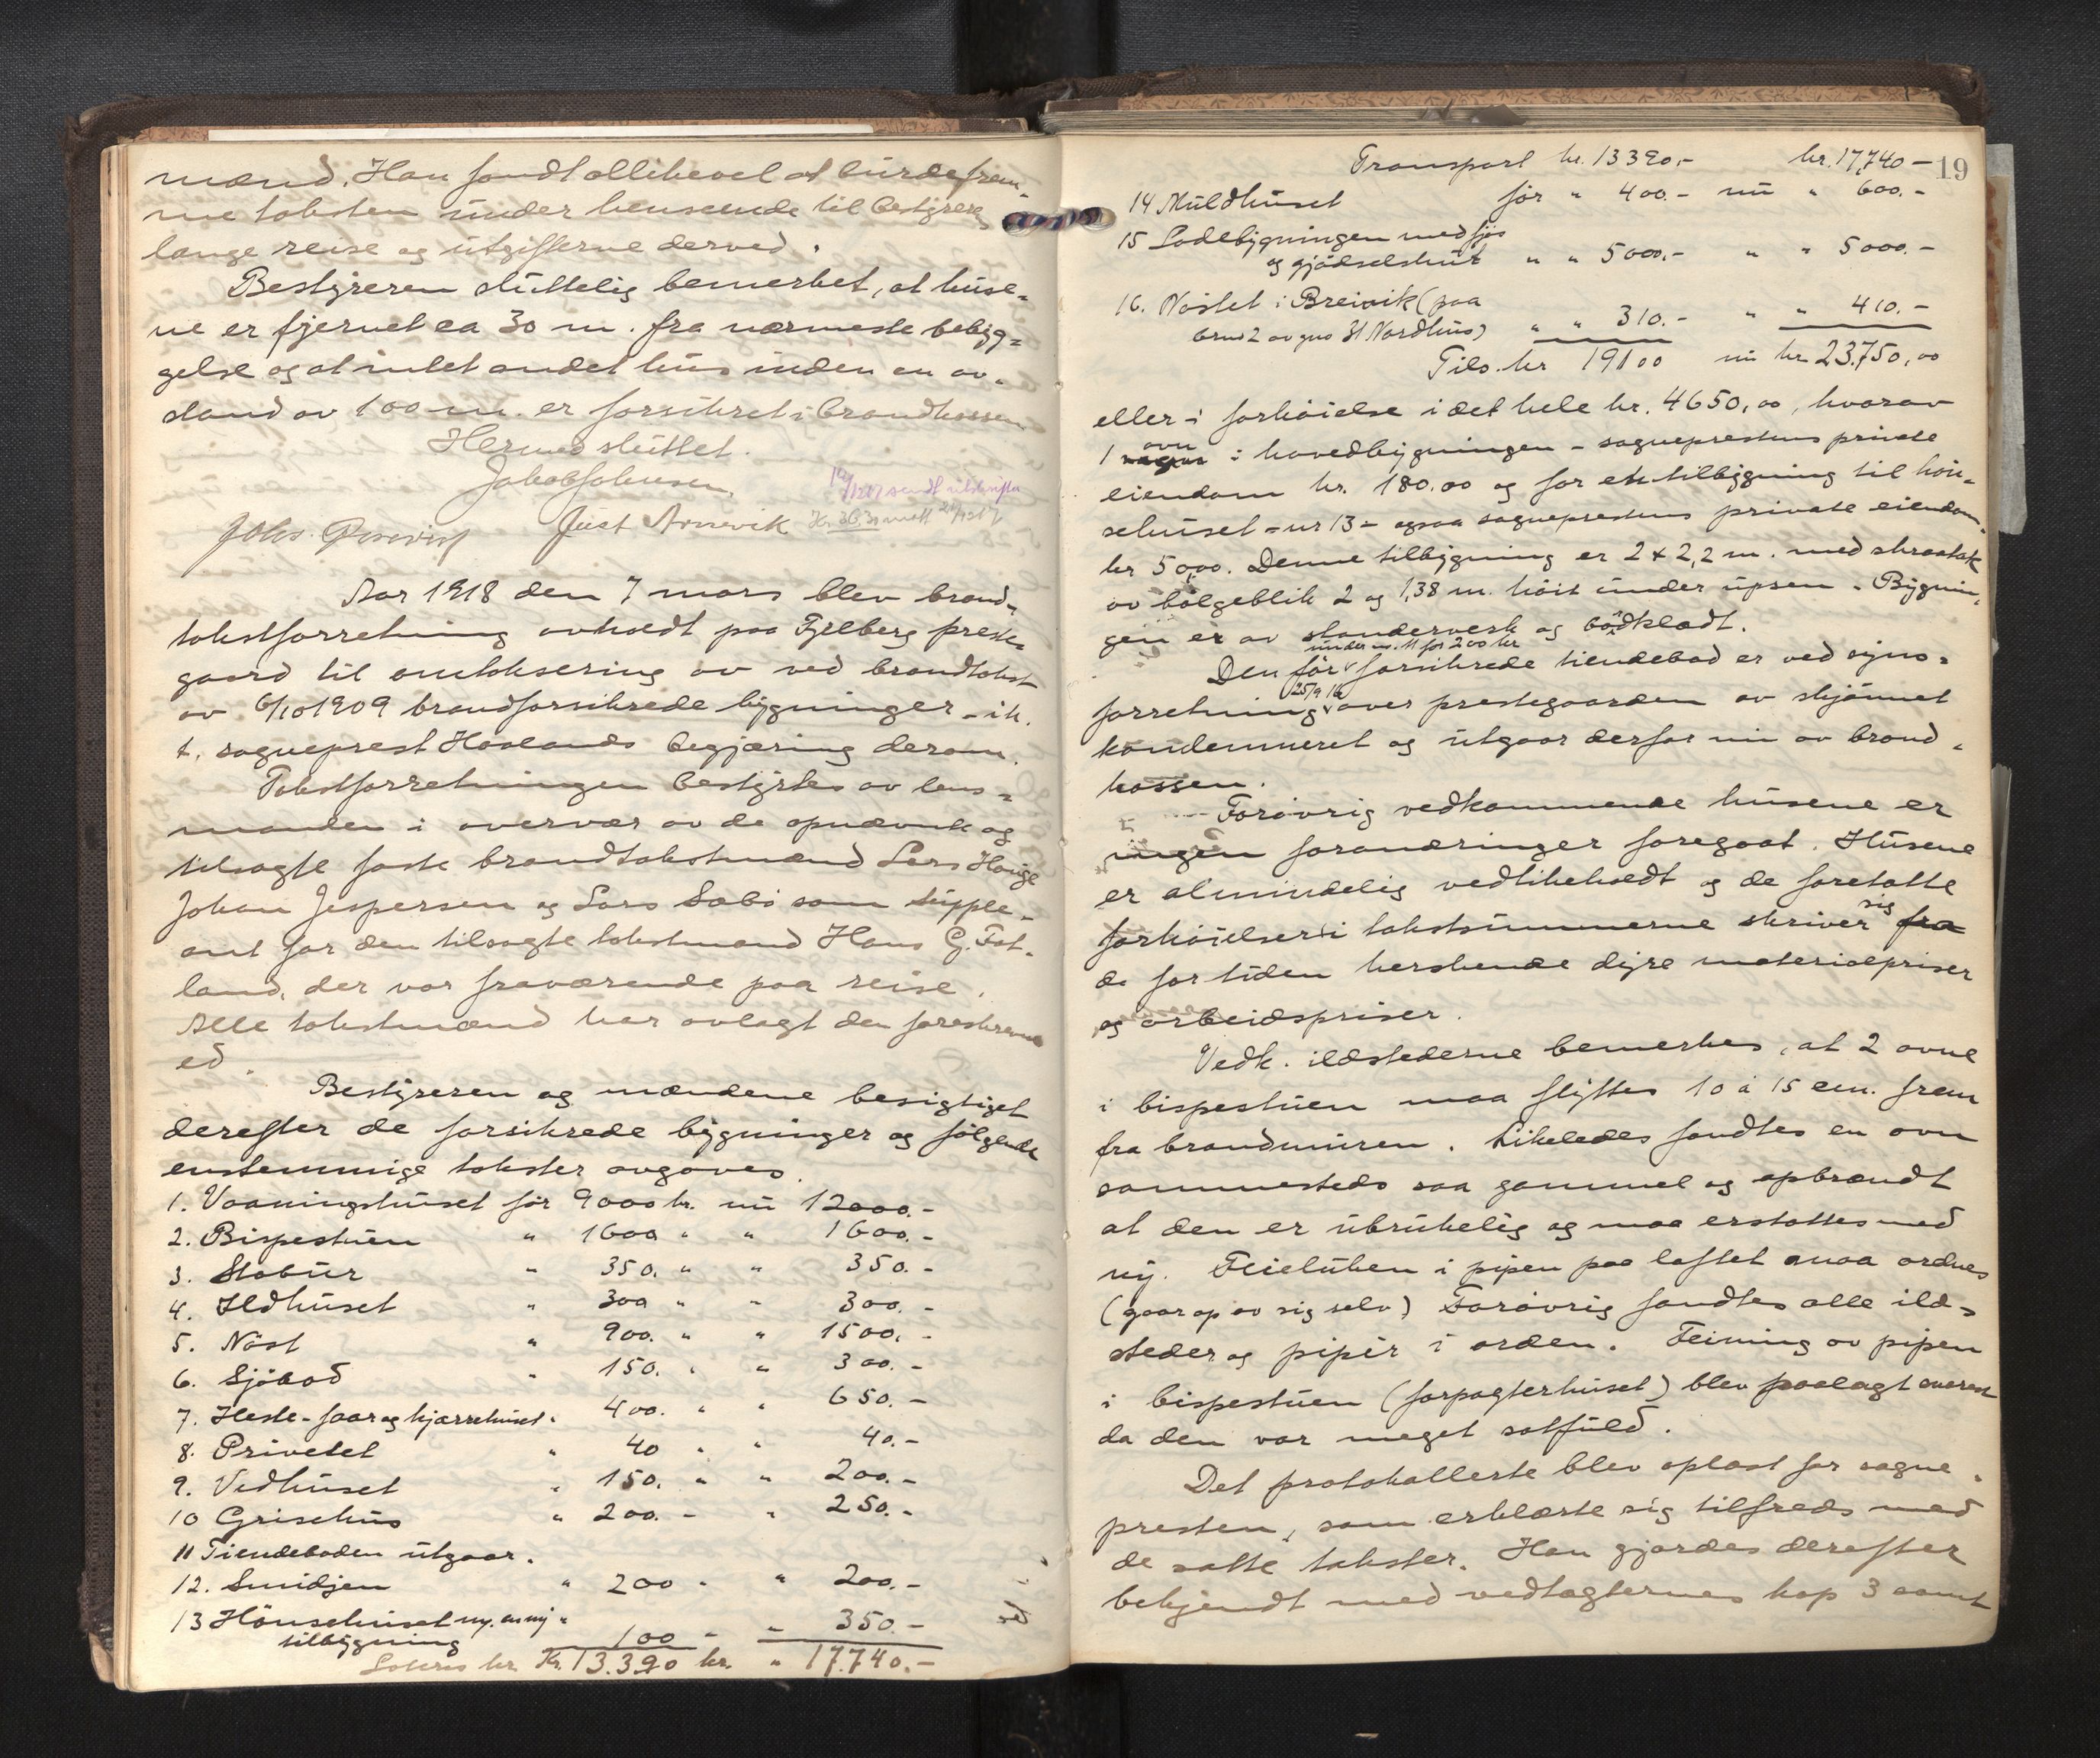 mænd. Han fandt allikevel at burde frem-
me taksten under henseende til bestyrers
lange reise og utgifterne derved.
Bestyreren sluttelig bemerket, at huse-
ne er fjernet ca 30 m. fra nærmeste bebyg-
gelse og at intet andet hus inden en av-
stand av 100 m. er forsikret i brandkassen
Hermed sluttet.
Jakob Johnsen.
Johs. Just Arnevik
sendt utskrifter
Kr 36.30 mott
Aar 1918 den 7 mars blev brand-
takstforretning avholdt paa Fjelberg preste-
gaard til omtaksering av ved brandtakst
av 6/10 1909 brandforsikrede bygninger - ih.
t. sogneprest Hovlands begjæring derom.
Takstforretningen bestyrtes av lens-
manden i overvær av de opnævnte og
tilsagte faste brandtakstmænd Lars Hauge
Johan Jespersen og Lars Sæbø som supple-
ant for den tilsagte takstmand Hans G. Fat-
land, der var fraværende paa reise.
Alle takstmænd har avlagt den foreskrevne
ed.
Bestyreren og mændene besigtiget
derefter de forsikrede bygninger og følgende
enstemmige takster avgaves.
1. Vaaningshuset før 9000 kr. nu 12000.-
2. Bispestuen " 1600 " " 1600.-
3. Stabur " 350. " " 350.-
4. Ildhuset " 300 " " 300.-
5. Nøst " 900. " " 1500.-
6. Sjøbod " 150. " " 300.-
7. Heste- faar og kjærrehuset " 400. " " 650.-
8. Privetet " 40 " " 40.-
9. Vedhuset " 150. " " 200.-
10 Grisehus " 200. - " 250.-
11 Tiendeboden utgaar.
12. Smidjen " 200 - " 200.-
13 Hønsehuset og en ny " 100 - " 350.-
tilbygning
Kr. 13.390 kr. " 17.740.-
19
Transport kr. 13390.- kr. 17,740-
14 Muldhuset før " 400.- nu " 600.-
15 Ladebygningen med fjøs
og gjødselshut " " 5000.- " " 5000.-
16. Nøstet i Breivik (paa
brno 2 av gno 31 Nordhus) " " 310.- " " 410.-
Tils. kr 19100 nu kr 23.750,00
eller i forhøielse i det hele kr. 4650,00, hvorav
1 ovn i hovedbygningen - sogneprestens private
eiendom kr. 180.00 og for en tilbygning til høn-
sehuset - nr 13 - ogsaa sogneprestens private eiendom
kr 50,00. Denne tilbygning er 2 x 2,2 m. med skraatak
av bølgeblik 2 og 1,38 m. høit under upsen. Bygnin-
gen er av standerverk og bordklædt.
under nr. 11 for 200 kr
Den før forsikrede tiendebod er ved syns-
25/9 16
forretning over prestegaarden av skjønnet
kondemneret og utgaar derfor nu av brand-
kassen.
Forøvrig vedkommende husene er
ingen forandringer foregaat. Husene
er almindelig vedlikeholdt og de foretatte
forhøielser i takstsummerne skriver sig fra
de for tiden herskende dyre materialpriser
og arbeidspriser.
Vedk. ildstederne bemerkes, at 2 ovne
i bispestuen maa flyttes 10 à 15 cm. frem
fra brandmuren. Likeledes fandtes en ovn
sammesteds saa gammel og opbrændt
at den er ubrukelig og maa erstattes med
ny. Feieluken i pipen paa loftet maa ordnes
(gaar op av sig selv) Forøvrig fandtes alle ild-
steder og piper i orden. Feining av pipen
i bispestuen (forpagterhuset) blev paalagt
da den var meget sotfuld.
Det protokollerte blev oplæst for sogne-
presten, som erklærte sig tilfreds med
de satte takster. Han gjordes derefter
bekjendt med vedtægternes kap 3 samt